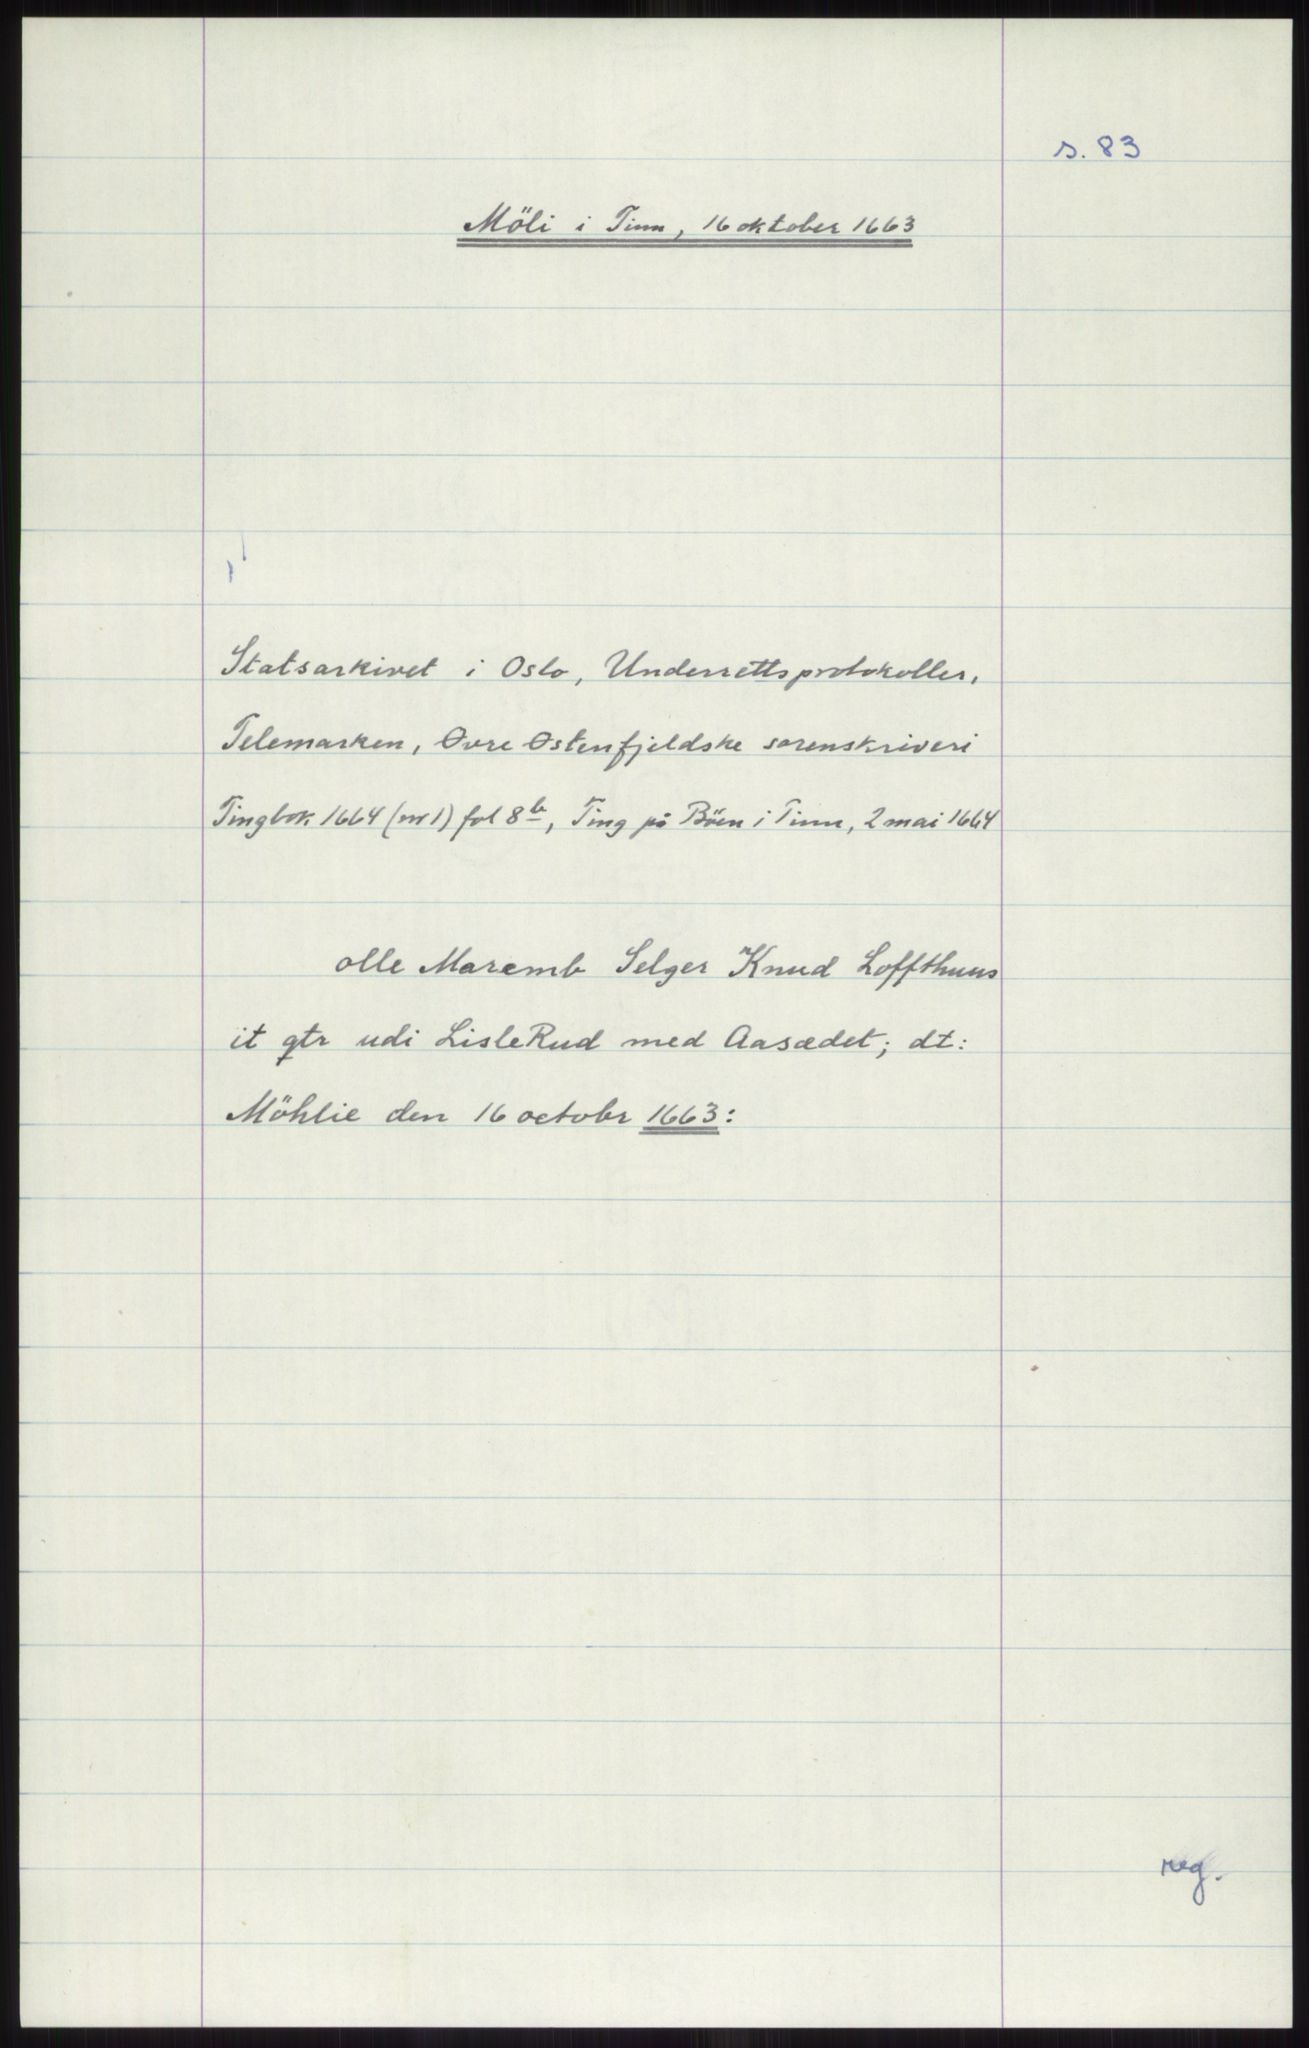 s. 83
Möli i Tinn, 16 oktober 1663
Statsarkivet i Oslo, Underrettsprotokoller,
Telemarken, Øvre Østenfjeldske sorenskriveri
Tingbok 1664 (nr 1) fol 8b, Ting på Böen i Tinn, 2 mai 1664
olle Maremb Selger Knud Loffthuus
it qtr udi LisleRud med Aasædet; dt:
Möhlie den 16 octobr 1663:
reg.